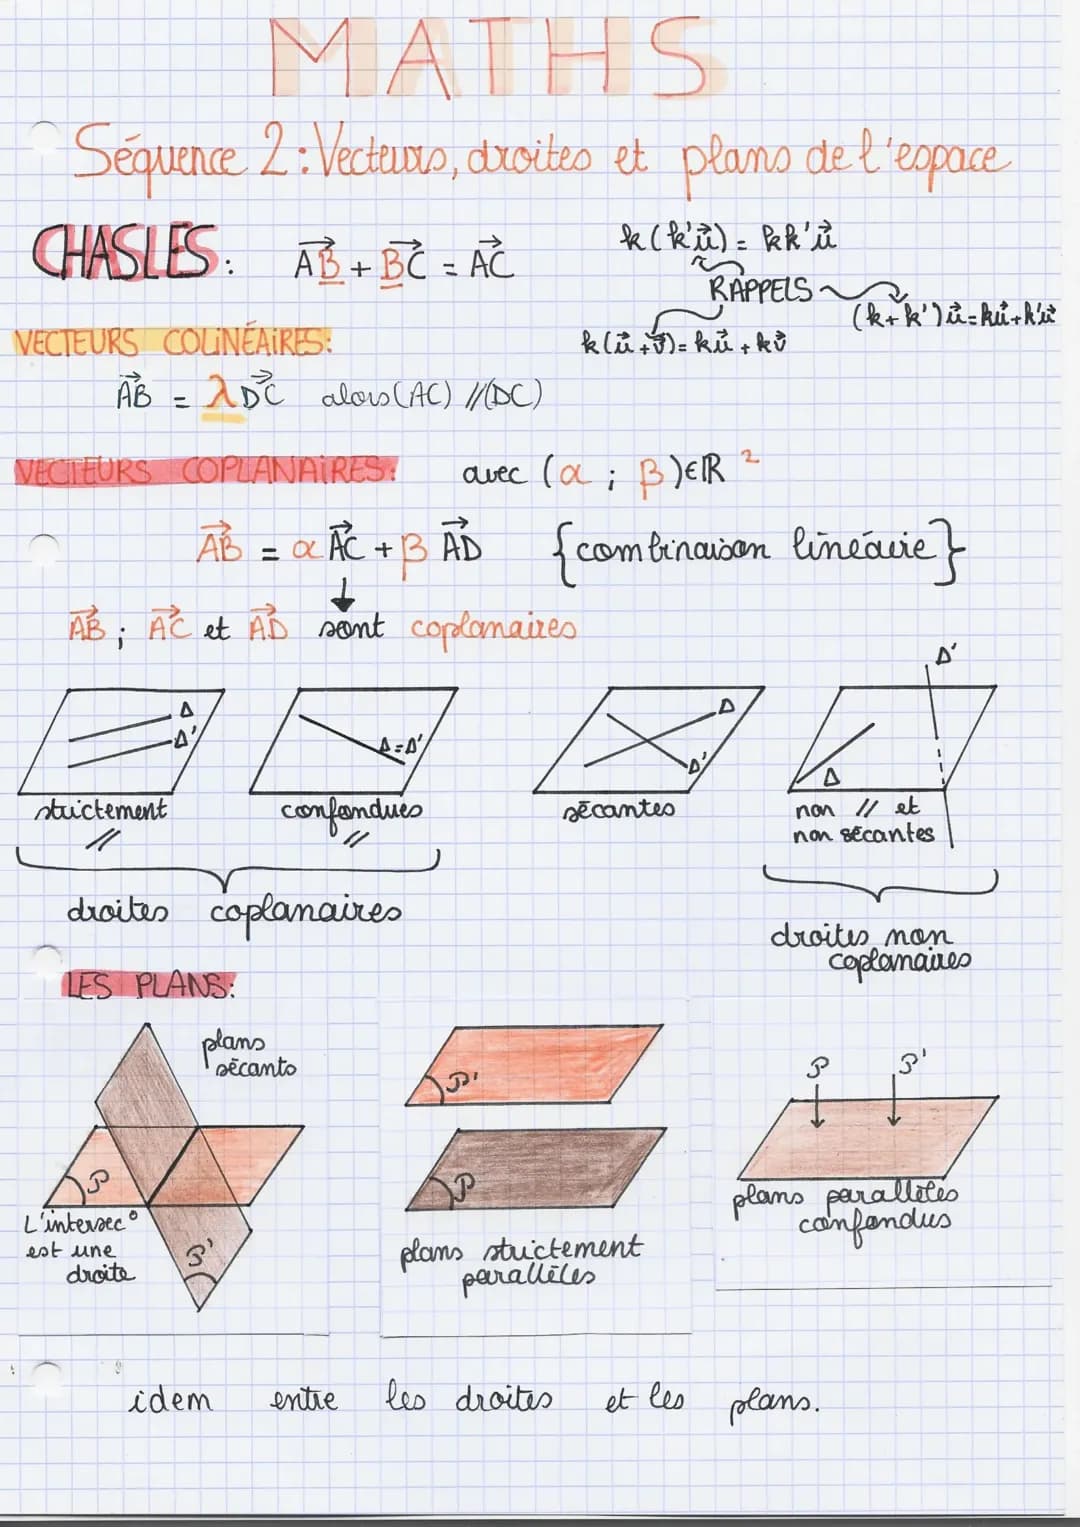 MATHS
Séquence 2: Vecteurs, droites et plans de l'espace
CHASLES: AB⃗ + BC⃗ = AC⃗
k(k'u⃗) = kk'u⃗
RAPPELS
(k+k')u⃗=ku⃗+k'u⃗
k(u⃗+v⃗)= ku⃗ + kv⃗
VECTEURS COLINÉAIRES:
AB⃗ = λDC⃗ alors (AC) //(DC)
VECTEURS COPLANAIRES: avec (α ; β)∈ℝ²
AB⃗ = αAC⃗ + β AD⃗ {combinaison linéaire}
AB⃗ ; AC⃗ et AD⃗ sont coplanaires
Δ
Δ'
strictement
//
Δ=Δ'
confondues
//
Δ
Δ'
sécantes
Δ'
Δ
non // et
non sécantes
droites coplanaires
droites non
coplanaires
LES PLANS:
plans
sécants
P
P'
L'intersec°
est une
droite
P'
P
plans strictement
parallèles
P P'
plans parallèles
confondus
idem entre les droites et les plans.